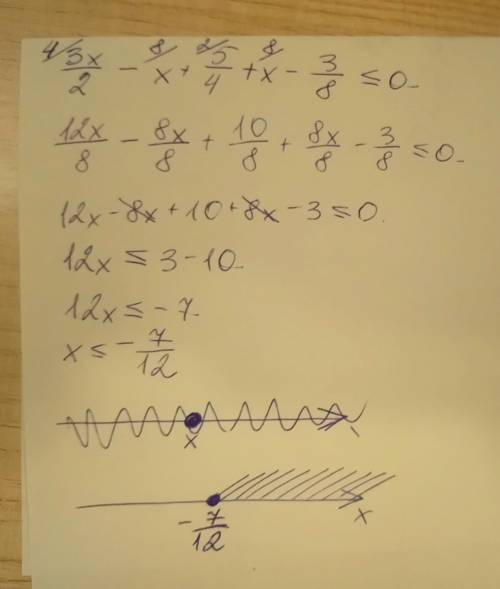 4/ 3x/2 - 8/ x + 2/ 5/4 + 8/ x - 3/8 ≤ 0
12x/8 - 8x/8 + 10/8 + 8x/8 - 3/8 ≤ 0
12x - 8x + 10 + 8x - 3 ≤ 0
12x ≤ 3 - 10
12x ≤ - 7
x ≤ - 7/12
x
- 7/12 x